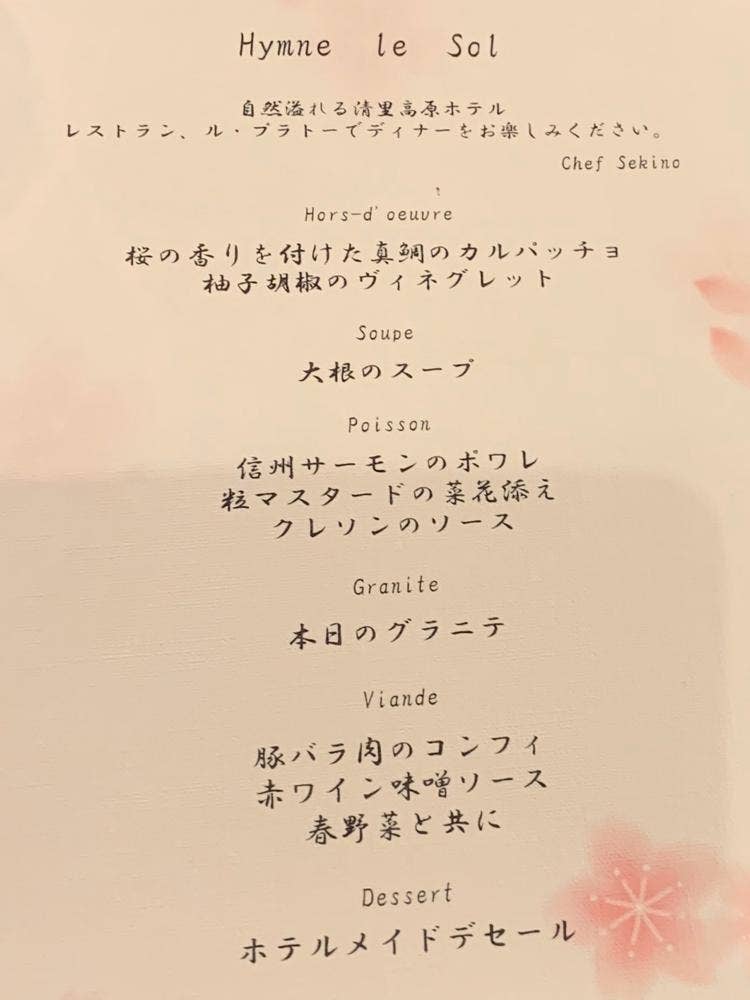 Hymne le Sol
自然溢れる清里高原ホテル
レストラン、ル・プラトーでディナーをお楽しみください。
Chef Sekino
Hors-d'oeuvre
桜の香りを付けた真鯛のカルパッチョ
柚子胡椒のヴィネグレット
Soupe
大根のスープ
Poisson
信州サーモンのポワレ
粒マスタードの菜花添え
クレソンのソース
Granite
本日のグラニテ
Viande
豚バラ肉のコンフィ
赤ワイン味噌ソース
春野菜と共に
Dessert
ホテルメイドデセール